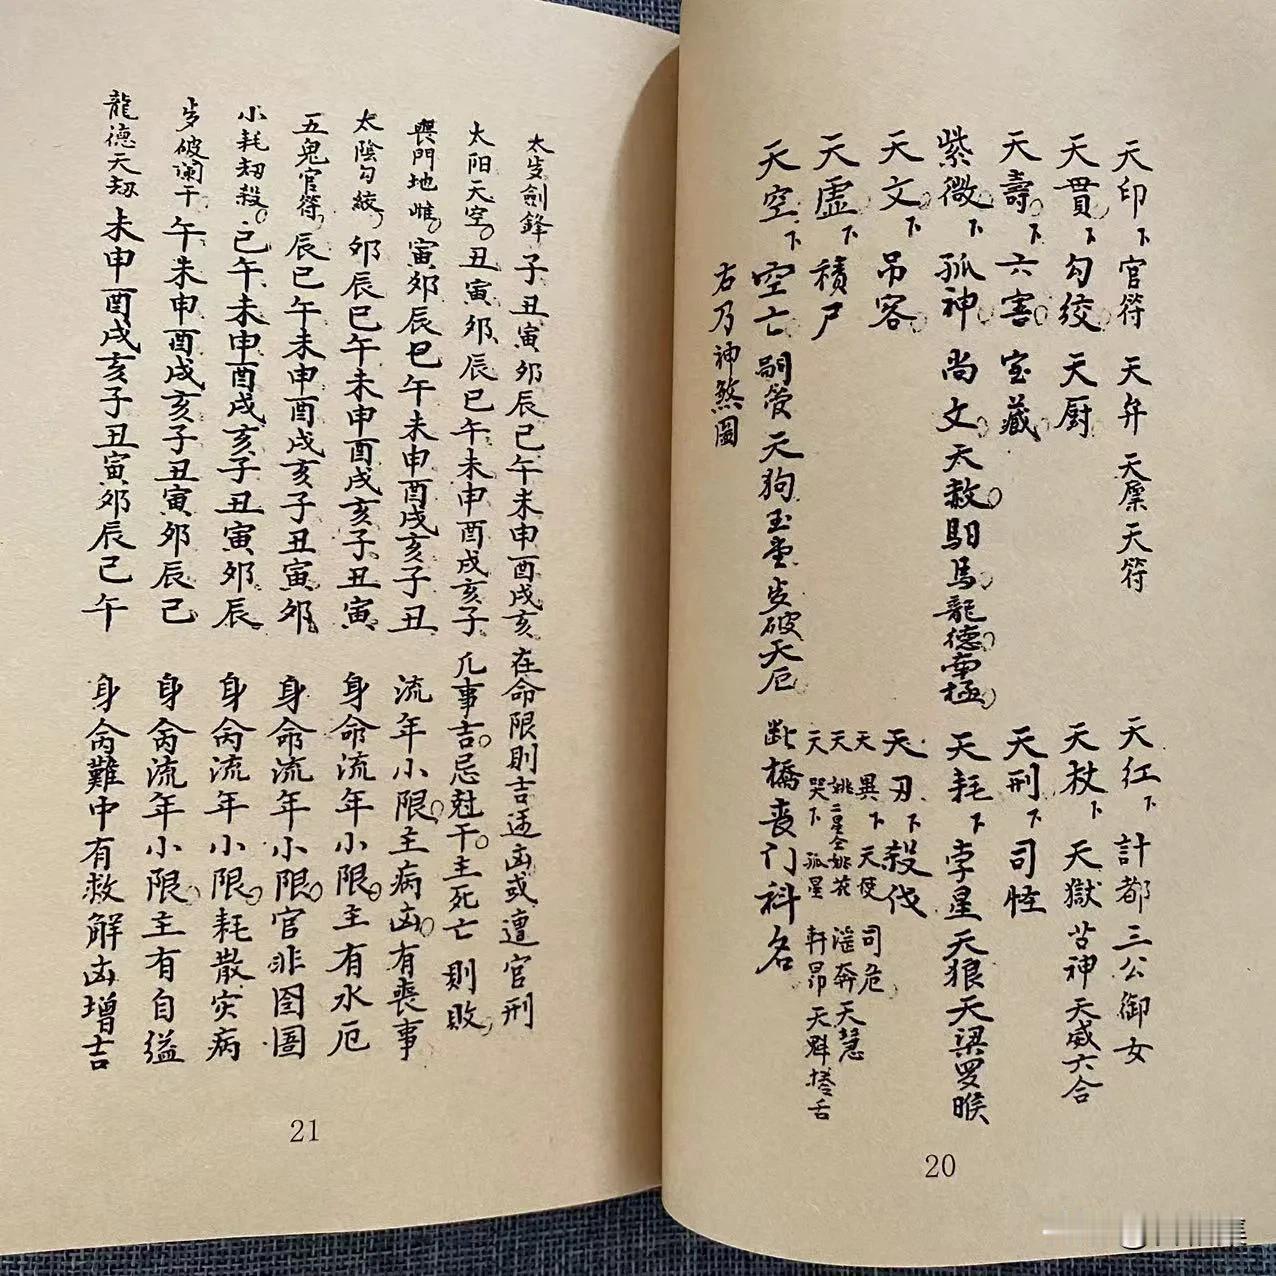 天印下官符 天弁 天廩天符 天红下計都三公御女
天貫下勾绞 天厨 天杖下天獄苦神天威六合
天壽下六害 宝藏 天刑下司怪
紫微下孤神 尚文太赦驲馬龍德南極 天耗下孛星天狼天梁罗睺
天文下吊客 天刃下殺伐
天異下天使司危
天姚二星仝姚花滛奔天慧
天虚下積尸 天哭下孤星軒昂天魁捲舌
天空下空亡嗣管天狗玉堂歩破天厄 断橋喪门科名
右乃神煞圖
20
太歩劍鋒子丑寅夘辰巳午未申酉戌亥在命限則吉逢凶或遭官刑
太阳天空丑寅夘辰巳午未申酉戌亥子 凡事吉忌尅干主死亡則敗
喪門地雌寅夘辰巳午未申酉戌亥子丑 流年小限主病凶有喪事
太陰勾絞夘辰巳午未申酉戌亥子丑寅 身命流年小限主有水厄
五鬼官符辰巳午未申酉戌亥子丑寅夘 身命流年小限官非囹圄
小耗刼殺巳午未申酉戌亥子丑寅夘辰 身命流年小限耗散灾病
歩破阑干午未申酉戌亥子丑寅夘辰巳 身命流年小限主有自缢
龍德天刼未申酉戌亥子丑寅夘辰巳午 身命難中有救解凶增吉
21